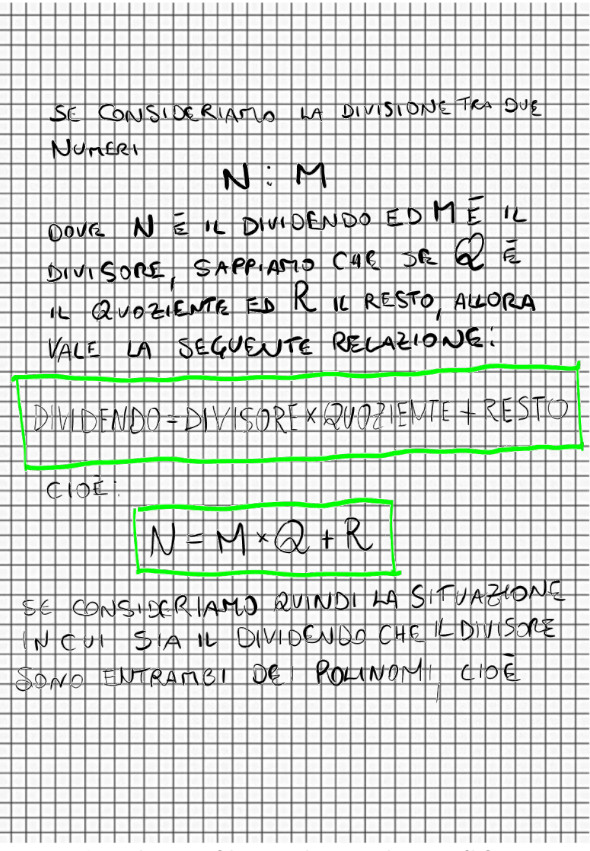 SE CONSIDERIAMO LA DIVISIONE TRA DUE
NUMERI
N : M
DOVE N È IL DIVIDENDO ED M È IL
DIVISORE, SAPPIAMO CHE SE Q È
IL QUOZIENTE ED R IL RESTO, ALLORA
VALE LA SEGUENTE RELAZIONE:
DIVIDENDO = DIVISORE × QUOZIENTE + RESTO
CIOÈ:
N = M × Q + R
SE CONSIDERIAMO QUINDI LA SITUAZIONE
IN CUI SIA IL DIVIDENDO CHE IL DIVISORE
SONO ENTRAMBI DEI POLINOMI, CIOÈ